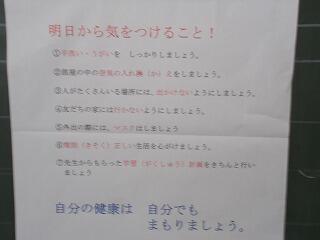 明日から気をつけること！
①手洗い・うがいを しっかりしましょう。
②部屋の中の空気の入れ換（か）えをしましょう。
③人がたくさんいる場所には、出かけないようにしましょう。
④友だちの家には行かないようにしましょう。
⑤外出の際には、マスクはしましょう
⑥規則（きそく）正しい生活を心がけましょう。
⑦先生からもらった学習（がくしゅう）計画をきちんと行い
ましょう
自分の健康は 自分でも
まもりましょう。